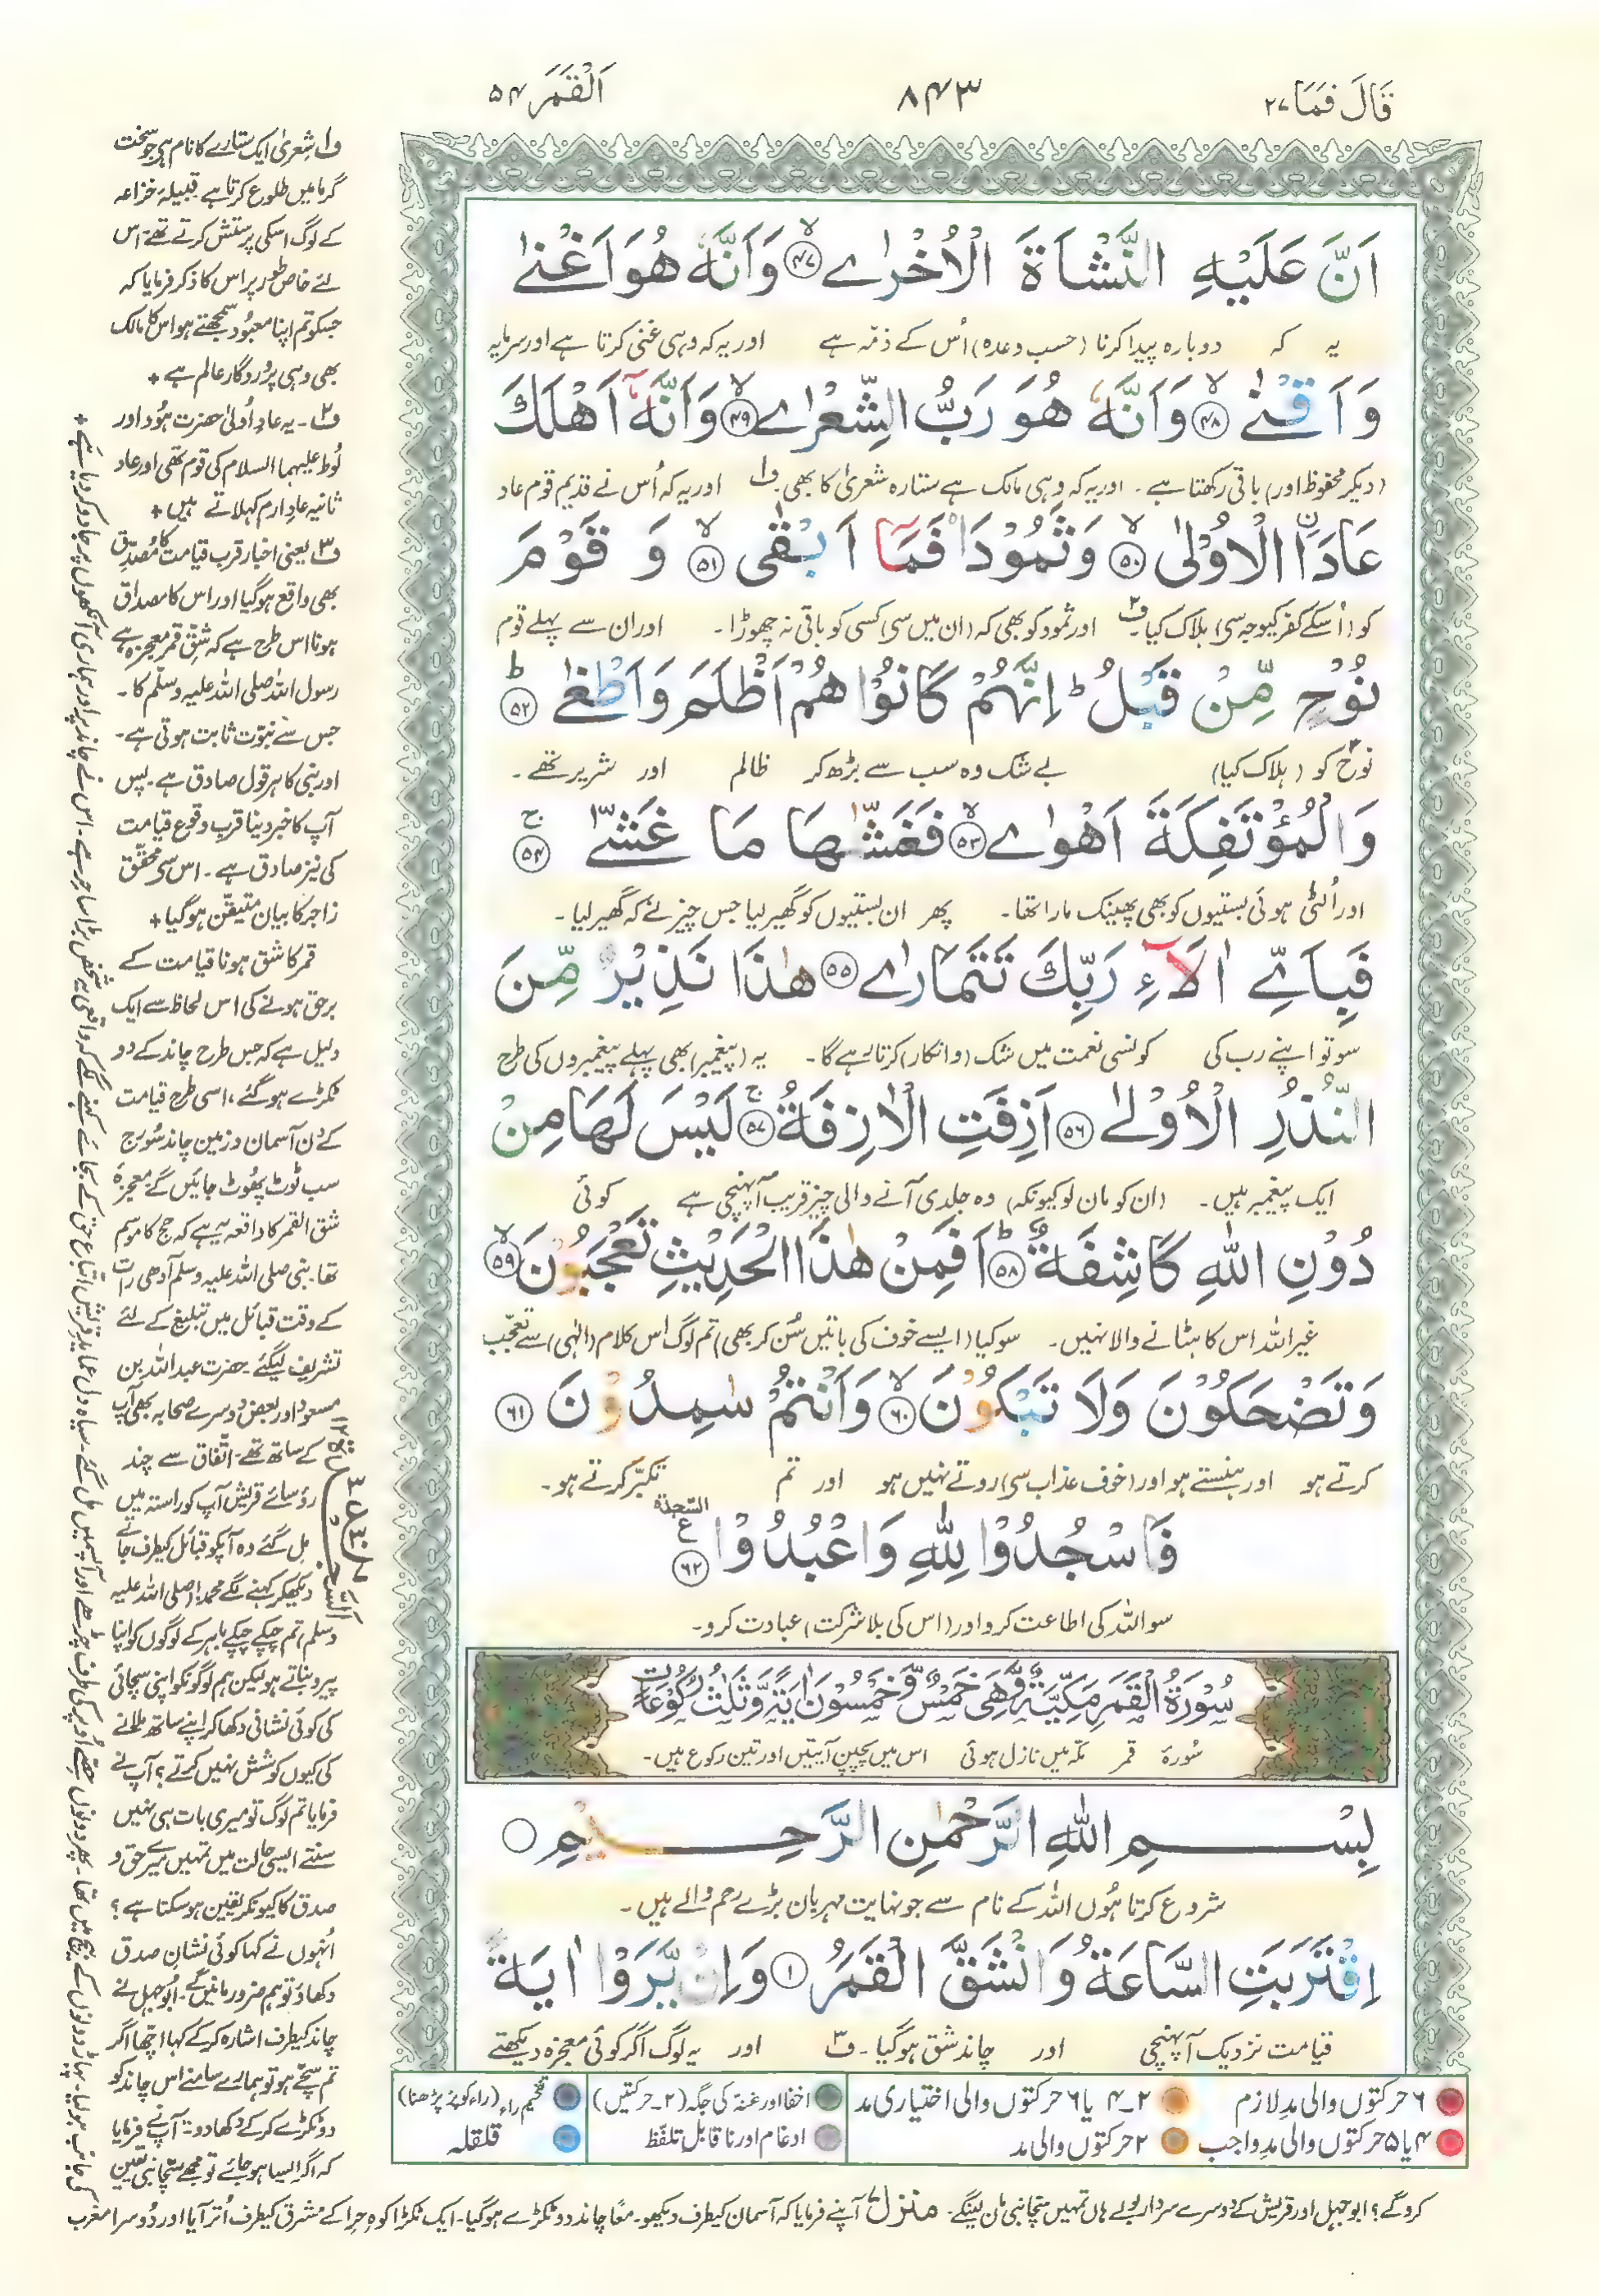 قَالَ فَمَا ٢٧
٨٤٣
اَلْقَمَر ٥٤
اَنَّ عَلَيْهِ النَّشْاَةَ الْاُخْرٰى ﴿٤٧﴾ وَاَنَّهٗ هُوَ اَغْنٰى
یہ کہ دوبارہ پیدا کرنا (حسب وعدہ) اُس کے ذمّہ ہے اور یہ کہ وہی غنی کرتا ہے اور سرمایہ
وَاَقْنٰى ﴿٤٨﴾ وَاَنَّهٗ هُوَ رَبُّ الشِّعْرٰى ﴿٤٩﴾ وَاَنَّهٗۤ اَهْلَكَ
(دیکر محفوظ اور) باقی رکھتا ہے۔ اور یہ کہ وہی مالک ہے ستارہ شعریٰ کا بھی ف۱ اور یہ کہ اُس نے قدیم قوم عاد
عَادَا ۨالْاُوْلٰى ﴿٥٠﴾ وَثَمُوْدَا۟ فَمَاۤ اَبْقٰى ﴿٥١﴾ وَ قَوْمَ
کو (اُسکے کفر کیوجہ سی) ہلاک کیا ف۲ اور ثمود کو بھی کہ (ان میں سی) کسی کو باقی نہ چھوڑا۔ اور ان سے پہلے قوم
نُوْحٍ مِّنْ قَبْلُ ؕ اِنَّهُمْ كَانُوْا هُمْ اَظْلَمَ وَاَطْغٰى ﴿٥٢﴾
نوح کو (ہلاک کیا) بے شک وہ سب سے بڑھ کر ظالم اور شریر تھے۔
وَالْمُؤْتَفِكَةَ اَهْوٰى ﴿٥٣﴾ فَغَشّٰىهَا مَا غَشّٰى ﴿٥٤﴾
اور اُلٹی ہوئی بستیوں کو بھی پھینک مارا تھا۔ پھر ان بستیوں کو گھیر لیا جس چیز نے کہ گھیر لیا۔
فَبِاَىِّ اٰلَآءِ رَبِّكَ تَتَمَارٰى ﴿٥٥﴾ هٰذَا نَذِيْرٌ مِّنَ
سو تو اپنے رب کی کونسی نعمت میں شک (و انکار) کرتا رہے گا۔ یہ (پیغمبر) بھی پہلے پیغمبروں کی طرح
النُّذُرِ الْاُوْلٰى ﴿٥٦﴾ اَزِفَتِ الْاٰزِفَةُ ﴿٥٧﴾ لَيْسَ لَهَا مِنْ
ایک پیغمبر ہیں۔ (ان کو مان لو کیونکہ) وہ جلدی آنے والی چیز قریب آ پہنچی ہے کوئی
دُوْنِ اللّٰهِ كَاشِفَةٌ ﴿٥٨﴾ اَفَمِنْ هٰذَا الْحَدِيْثِ تَعْجَبُوْنَ ﴿٥٩﴾
غیر اللہ اس کا ہٹانے والا نہیں۔ سو کیا (ایسے خوف کی باتیں سُن کر بھی) تم لوگ اس کلام (الٰہی) سے تعجّب
وَتَضْحَكُوْنَ وَلَا تَبْكُوْنَ ﴿٦٠﴾ وَاَنْتُمْ سٰمِدُوْنَ ﴿٦١﴾
کرتے ہو اور ہنستے ہو اور (خوف عذاب سی) روتے نہیں ہو اور تم تکبّر کرتے ہو۔
فَاسْجُدُوْا لِلّٰهِ وَاعْبُدُوْا ﴿٦٢﴾ السّجدة
سو اللہ کی اطاعت کرو اور (اس کی بلا شرکت) عبادت کرو۔
سُوْرَةُ الْقَمَرِ مَكِّيَّةٌ وَّهِىَ خَمْسٌ وَّخَمْسُوْنَ اٰيَةً وَّثَلٰثُ رُكُوْعَاتٍ
سُورۂ قمر مکّہ میں نازل ہوئی اس میں پچپن آیتیں اور تین رکوع ہیں۔
بِسْمِ اللّٰهِ الرَّحْمٰنِ الرَّحِيْمِ
شروع کرتا ہُوں اللہ کے نام سے جو نہایت مہربان بڑے رحم والے ہیں۔
اِقْتَرَبَتِ السَّاعَةُ وَانْشَقَّ الْقَمَرُ ﴿١﴾ وَاِنْ يَّرَوْا اٰيَةً
قیامت نزدیک آ پہنچی اور چاند شق ہو گیا۔ ف۳ اور یہ لوگ اگر کوئی معجزہ دیکھتے
۶ حرکتوں والی مدِ لازم
۲۔۴ یا ۶ حرکتوں والی اختیاری مد
اخفا اور غنہ کی جگہ (۲۔حرکتیں)
تفخیم راء (راء کو پُر پڑھنا)
۴ یا ۵ حرکتوں والی مدِ واجب
۲ حرکتوں والی مد
ادغام اور ناقابل تلفّظ
قلقلہ
ف۱ شعریٰ ایک ستارے کا نام ہی جو سخت
گرما میں طلوع کرتا ہے قبیلۂ خزاعہ
کے لوگ اسکی پرستش کرتے تھے اس
لئے خاص طور پر اس کا ذکر فرمایا کہ
جسکو تم اپنا معبود سمجھتے ہو اس کا مالک
بھی وہی پروردگار عالم ہے +
ف۲۔ یہ عادِ اُولیٰ حضرت ہُود اور
لُوط علیہما السلام کی قوم تھی اور عاد
ثانیہ عاد ارم کہلاتے ہیں +
ف۳ یعنی اخبار قرب قیامت کا مُصدِّق
بھی واقع ہو گیا اور اس کا مصداق
ہونا اس طرح ہے کہ شق قمر معجزہ ہے
رسول اللہ صلی اللہ علیہ وسلم کا۔
جس سے نبوّت ثابت ہوتی ہے۔
اور نبی کا ہر قول صادق ہے۔ پس
آپ کا خبر دینا قربِ وقوعِ قیامت
کی نیز صادق ہے۔ اس سی محقّق
زاجر کا بیان متیقّن ہو گیا +
قمر کا شق ہونا قیامت کے
برحق ہونے کی اس لحاظ سے ایک
دلیل ہے کہ جس طرح چاند کے دو
ٹکڑے ہو گئے، اسی طرح قیامت
کے دن آسمان و زمین چاند سُورج
سب ٹوٹ پُھوٹ جائیں گے معجزہ
شق القمر کا واقعہ یہ ہے کہ حج کا موسم
تھا۔ نبی صلی اللہ علیہ وسلم آدھی رات
کے وقت قبائل میں تبلیغ کے لئے
تشریف لیگئے۔ حضرت عبداللہ بن
مسعود اور بعض دوسرے صحابہ بھی آپ
کے ساتھ تھے۔ اتّفاق سے چند
رؤسائے قریش آپ کو راستہ میں
مل گئے وہ آپکو قبائل کیطرف جاتے
دیکھکر کہنے لگے محمد! (صلی اللہ علیہ
وسلم) تم چپکے چپکے باہر کے لوگوں کو اپنا
پیرو بناتے ہو لیکن ہم لوگونکو اپنی سچائی
کی کوئی نشانی دکھا کر اپنے ساتھ ملانے
کی کیوں کوشش نہیں کرتے؟ آپ نے
فرمایا تم لوگ تو میری بات ہی نہیں
سنتے ایسی حالت میں تمہیں میرے حق و
صدق کا کیونکر یقین ہو سکتا ہے؟
اُنہوں نے کہا کوئی نشانِ صدق
دکھاؤ تو ہم ضرور مانیں گے۔ ابوجہل نے
چاند کیطرف اشارہ کر کے کہا اچّھا اگر
تم سچّے ہو تو ہمارے سامنے اس چاند کو
دو ٹکڑے کر کے دکھا دو۔ آپ نے فرمایا
کہ اگر ایسا ہو جائے تو مجھے سچّا نبی یقین
کرو گے؟ ابوجہل اور قریش کے دوسرے سردار بولے ہاں تمہیں سچّا نبی مان لینگے۔ منزل ۷ آپنے فرمایا کہ آسمان کیطرف دیکھو۔ معًا چاند دو ٹکڑے ہو گیا۔ ایک ٹکڑا کوہِ حِرا کے مُشرق کیطرف اُتر آیا اور دُوسرا مغرب
کی جانب ہو لیا۔ پہاڑ دونوں کے بیچ میں تھا۔ پھر دونوں حصّے اُوپر کی طرف چڑھے اور آپسمیں مل گئے۔ سیاہ دل عمایدِ قریش اتباعِ حق کے بجائے کہنے لگے کہ واقعی یہ شخص بڑا ساحر ہے۔ اس نے چاند پر اور ہماری آنکھوں پر جادو کر دیا ہے +